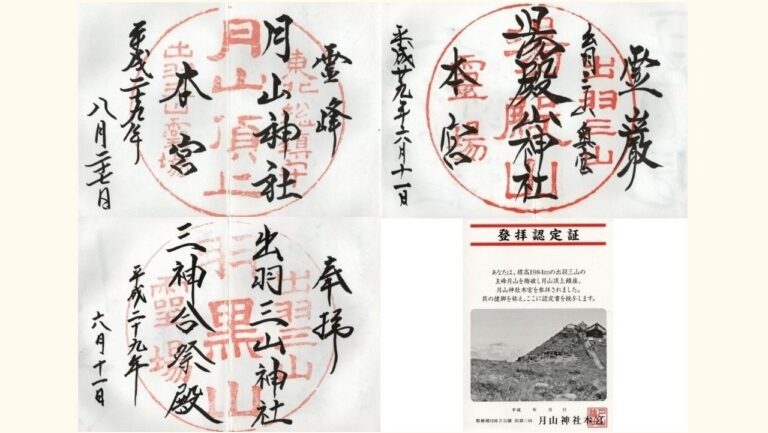 霊峰
月山神社
本宮
平成二十九年
八月二十七日
月山頂上
出羽三山霊場
霊巌
湯殿山神社
本宮
平成廿九年六月十一日
出羽三山
湯殿山
靈場
奉拝
出羽三山神社
三神合祭殿
平成二十九年
六月十一日
出羽三山
羽黒山
靈場
登拝認定証
あなたは、標高1984mの出羽三山の
主峰月山を踏破し月山頂上鎮座、
月山神社本宮を参拝されました。
其の健脚を称え、ここに認定書を授与します。
平成 年 月 日
磐梯朝日国立公園 出羽三山 月山神社本宮